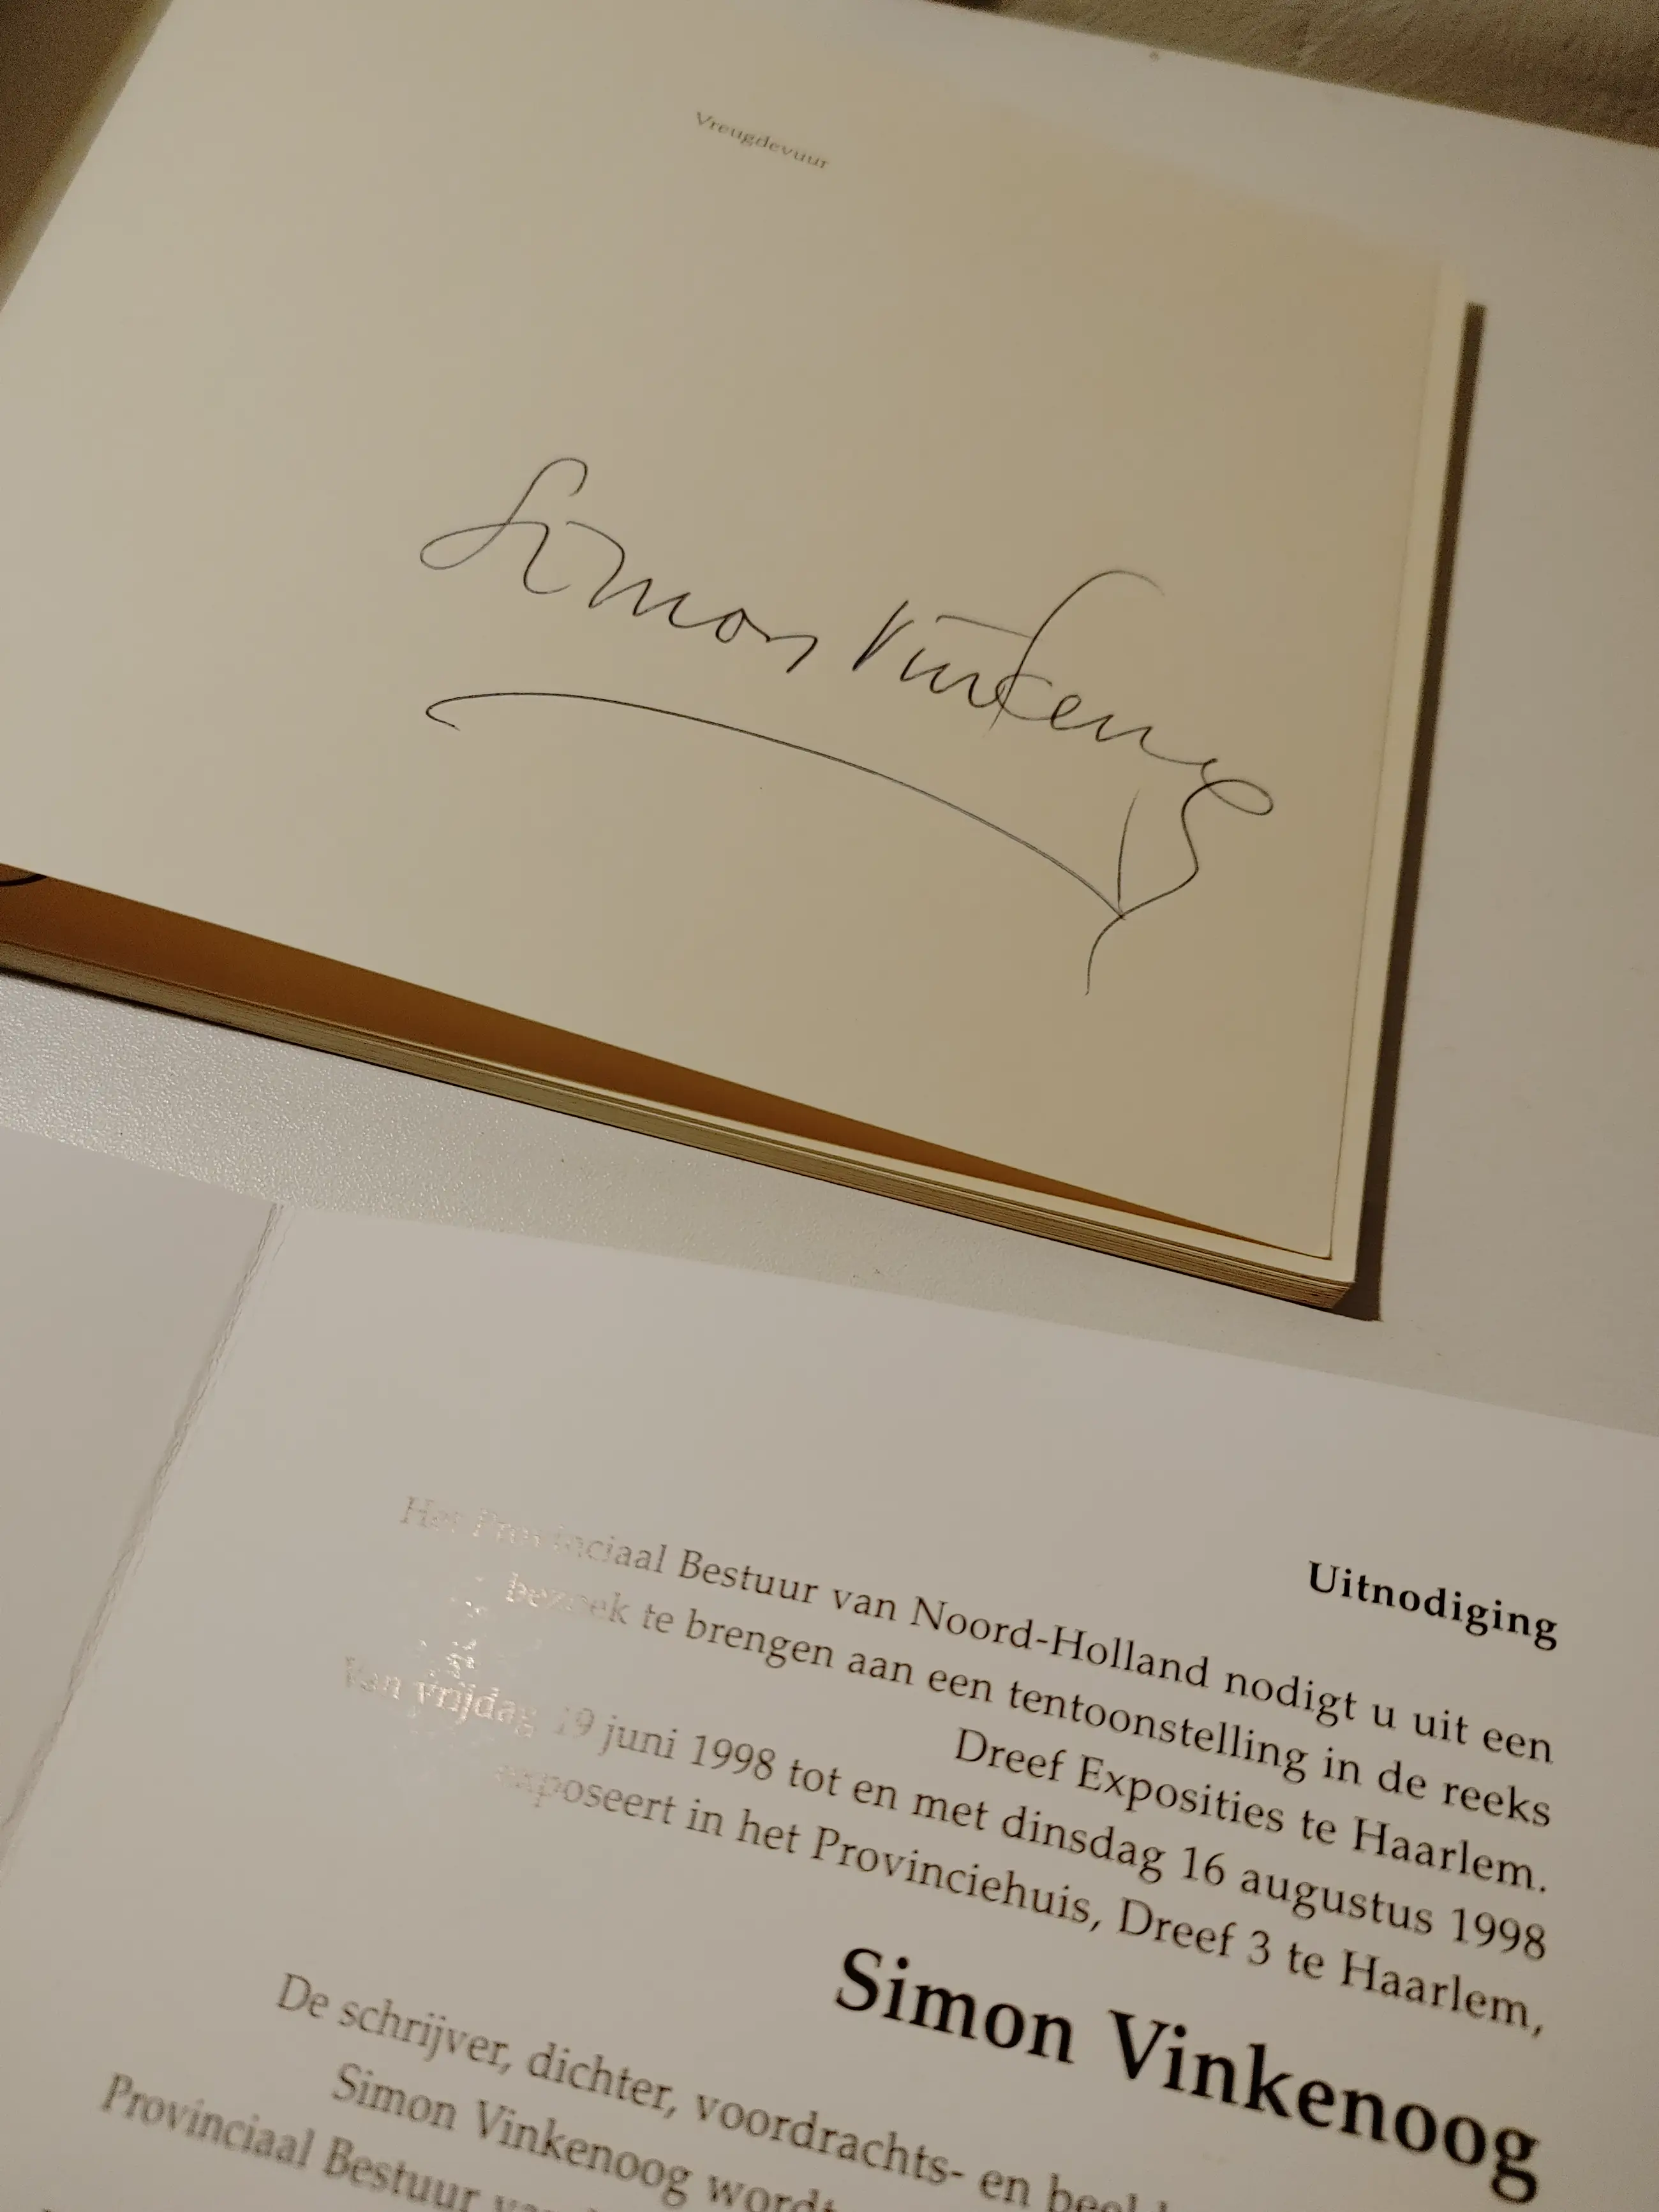 Vreugdevuur
Simon Vinkenoog
Uitnodiging
Het Provinciaal Bestuur van Noord-Holland nodigt u uit een
bezoek te brengen aan een tentoonstelling in de reeks
Dreef Exposities te Haarlem.
Van vrijdag 19 juni 1998 tot en met dinsdag 16 augustus 1998
exposeert in het Provinciehuis, Dreef 3 te Haarlem,
Simon Vinkenoog
De schrijver, dichter, voordrachts- en
Simon Vinkenoog wordt
Provinciaal Bestuur